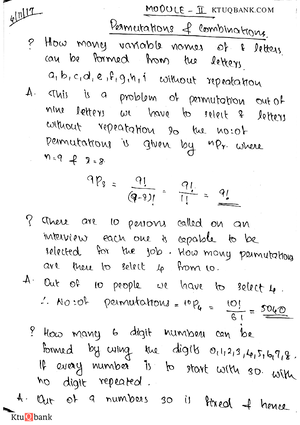 6/11/17
MODULE - II KTUQBANK.COM
Permutations & Combinations.
? How many variable names of 8 letters
can be formed from the letters
a, b, c, d, e, f, g, h, i without repetation
A. This is a problem of permutation out of
nine letters we have to select 8 letters
without repetation so the no: of
permutations is given by ⁿPr where
n=9 & r=8
9P8 = 9!/(9-8)! = 9!/1! = 9!
? There are 10 persons called on an
interview each one is capable to be
selected for the job. How many permutations
are there to select 4 from 10.
A. Out of 10 people we have to select 4.
∴ No: of permutations = ¹⁰P₄ = 10!/6! = 5040
? How many 6 digit numbers can be
formed by using the digits 0,1,2,3,4,5,6,7,8.
If every number is to start with 30 with
no digit repeated.
A. Out of 9 numbers 30 is fixed & hence
KtuQbank